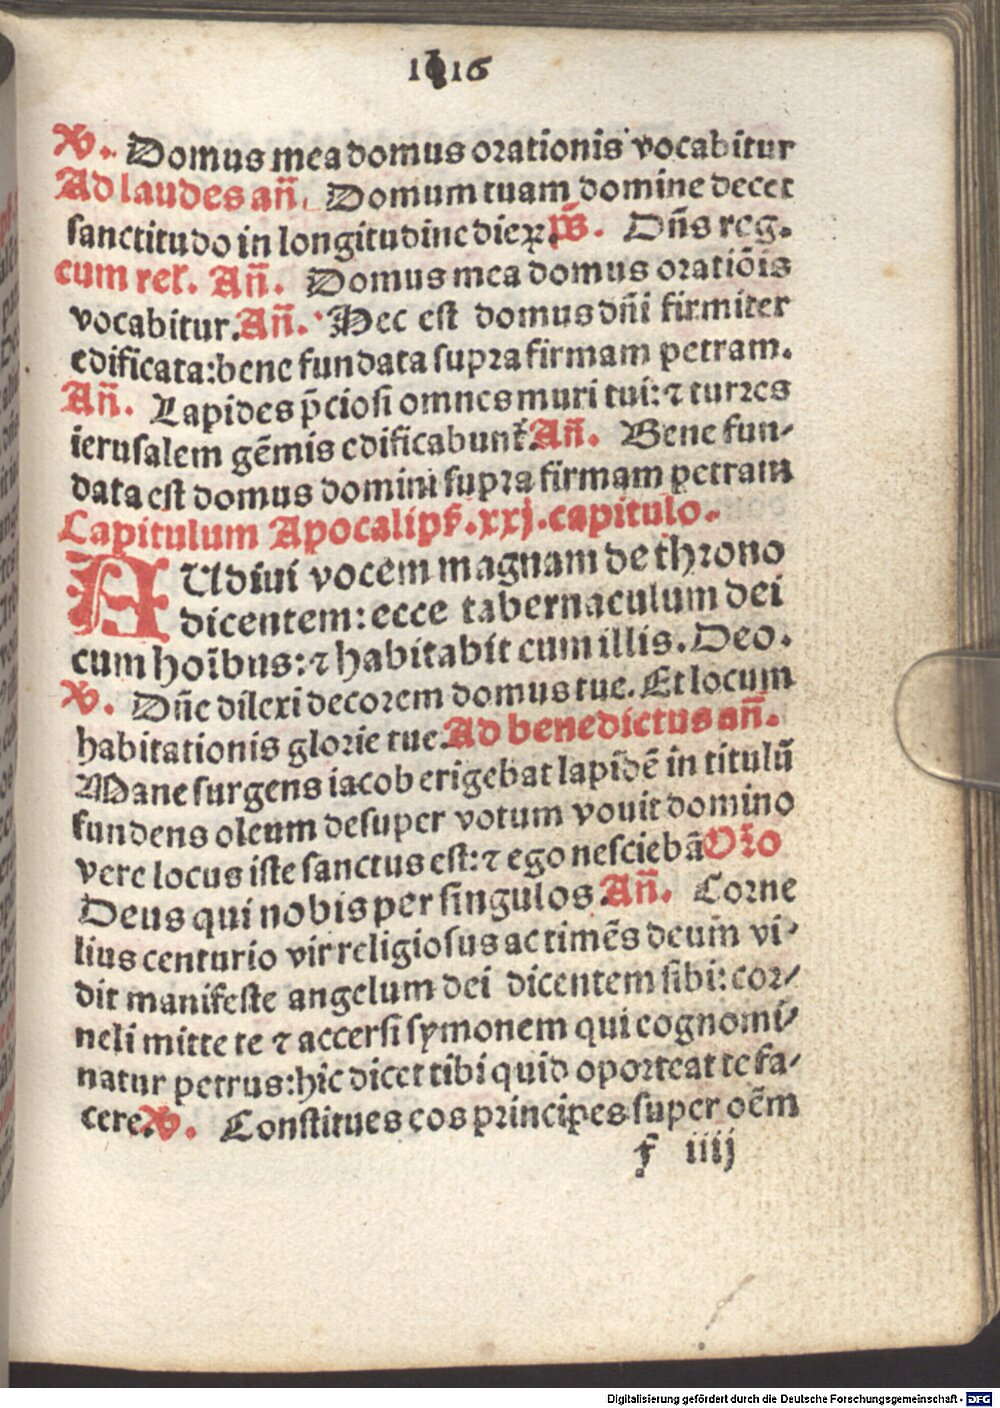 1616
℣. Domus mea domus orationis vocabitur
Ad laudes añ. Domum tuam domine decet
sanctitudo in longitudine dieꝝ. p̄s. Dñs reg.
cum rel. Añ. Domus mea domus oratiōis
vocabitur. Añ. Hec est domus dñi firmiter
edificata: bene fundata supra firmam petram.
Añ. Lapides p̄ciosi omnes muri tui: ⁊ turres
ierusalem gēmis edificabunt᷑ Añ. Bene fun-
data est domus domini supra firmam petram
Capitulum Apocalips̄. xxj. capitulo.
AUdiui vocem magnam de throno
dicentem: ecce tabernaculum dei
cum hoībus: ⁊ habitabit cum illis. Deo.
℣. Dñe dilexi decorem domus tue. Et locum
habitationis glorie tue. Ad benedictus añ.
Mane surgens iacob erigebat lapidē in titulū
fundens oleum desuper votum vouit domino
vere locus iste sanctus est: ⁊ ego nesciebā Oro
Deus qui nobis per singulos Añ. Corne
lius centurio vir religiosus ac timēs deum vi-
dit manifeste angelum dei dicentem sibi: cor-
neli mitte te ⁊ accersi symonem qui cognomi-
natur petrus: hic dicet tibi quid oporteat te fa-
cere. ℣. Constitues eos principes super oēm
f iiij
Digitalisierung gefördert durch die Deutsche Forschungsgemeinschaft - DFG